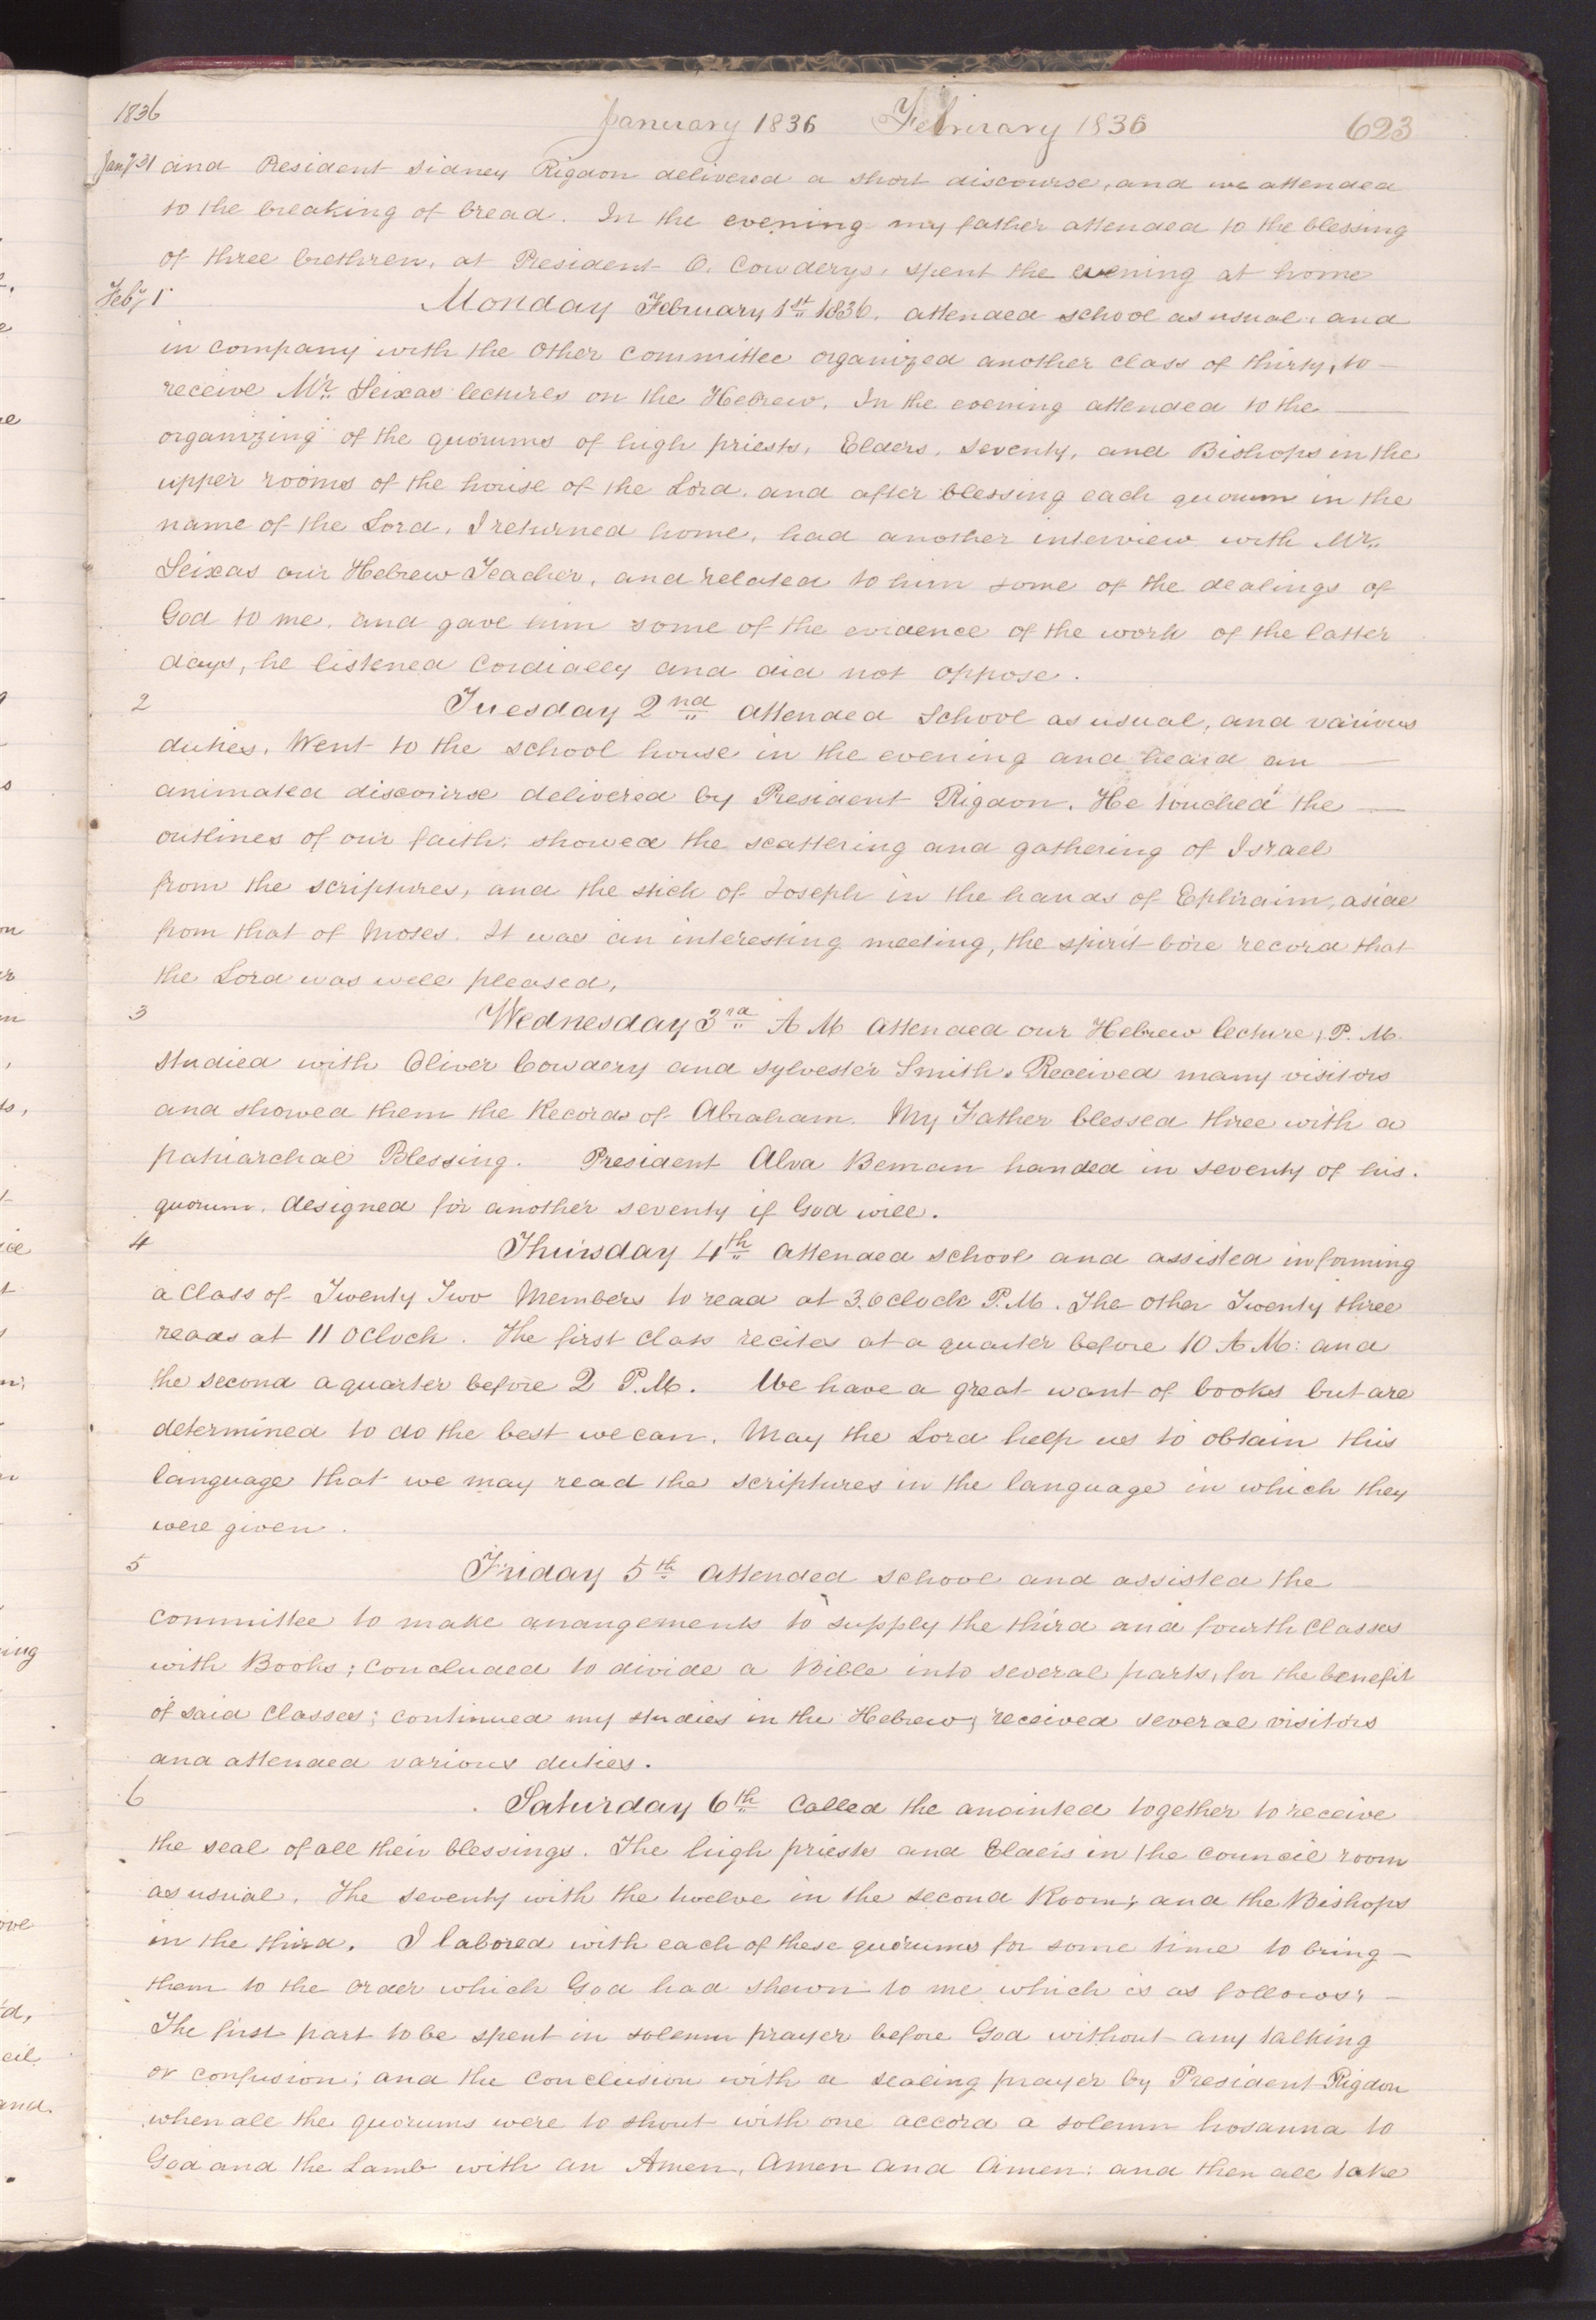 1836 January 1836 February 1836 623
Jany 31 and President Sidney Rigdon delivered a short discourse, and we attended
to the breaking of bread. In the evening my father attended to the blessing
of three brethren, at President O. Cowderys, spent the evening at home
Feby 1 Monday February 1st 1836. attended school as usual, and
in company with the other committee organized another class of thirty, to —
receive Mr. Seixas lectures on the Hebrew. In the evening attended to the —
organizing of the quorums of high priests, Elders, Seventy, and Bishops in the
upper rooms of the house of the Lord, and after blessing each quorum in the
name of the Lord, I returned home, had another interview with Mr.
Seixas our Hebrew Teacher, and related to him some of the dealings of
God to me, and gave him some of the evidence of the work of the latter
days, he listened cordially and did not oppose.
2 Tuesday 2nd attended School as usual, and various
duties. Went to the school house in the evening and heard an —
animated discourse delivered by President Rigdon. He touched the —
outlines of our faith, showed the scattering and gathering of Israel
from the scriptures, and the stick of Joseph in the hands of Ephraim, aside
from that of Moses. It was an interesting meeting, the spirit bore record that
the Lord was well pleased,
3 Wednesday 3rd A M attended our Hebrew lecture, P. M.
studied with Oliver Cowdery and Sylvester Smith. Received many visitors
and showed them the Records of Abraham. My Father blessed three with a
patriarchal Blessing. President Alva Beman handed in seventy of his
quorum, designed for another seventy if God will.
4 Thursday 4th attended school and assisted in forming
a class of Twenty Two Members to read at 3. oclock P.M. The other Twenty three
reads at 11 Oclock. The first class recites at a quarter before 10 A M: and
the second a quarter before 2 P.M. We have a great want of books but are
determined to do the best we can. May the Lord help us to obtain this
language that we may read the scriptures in the language in which they
were given.
5 Friday 5th attended school and assisted the
committee to make arrangements to supply the third and fourth classes
with Books; concluded to divide a Bible into several parts, for the benefit
of said classes; continued my studies in the Hebrew, received several visitors
and attended various duties.
6 Saturday 6th called the anointed together to receive
the seal of all their blessings. The high priests and Elders in the council room
as usual, The seventy with the twelve in the second Room; and the Bishops
in the third. I labored with each of these quorums for some time to bring —
them to the order which God had shewn to me which is as follows; —
The first part to be spent in solemn prayer before God without any talking
or confusion; and the conclusion with a sealing prayer by President Rigdon
when all the quorums were to shout with one accord a solemn hosanna to
God and the Lamb with an Amen, amen and amen: and then all take